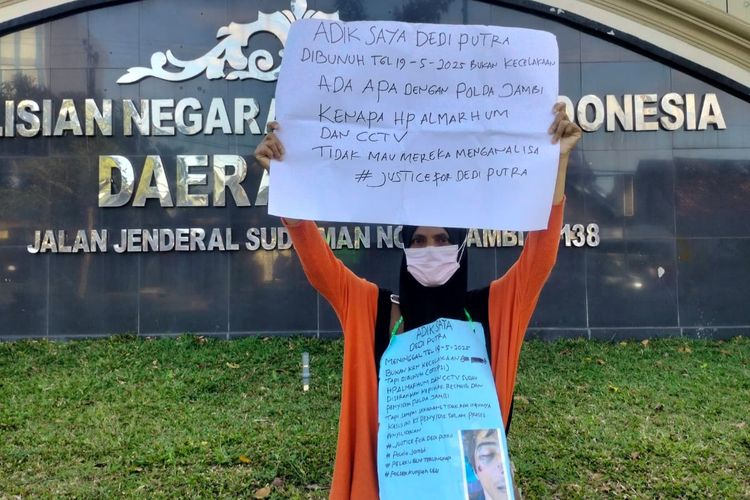 ADIK SAYA DEDI PUTRA
DIBUNUH TGL 19-5-2025 BUKAN KECELAKAAN
ADA APA DENGAN POLDA JAMBI
KENAPA HP ALMARHUM
DAN CCTV
TIDAK MAU MEREKA MENGANALISA
# JUSTICE FOR DEDI PUTRA
LISIAN NEGARA ONESIA
DAERA
JALAN JENDERAL SUD MAN NO AMBI 138
ADIK SAYA
DEDI PUTRA
MENINGGAL TGL 19-5-2025
BUKAN KRN KECELAKAAN
TAPI DIBUNUH
HP ALMARHUM DAN CCTV SUDAH
DISERAHKAN
PENYIDIK POLDA JAMBI
TAPI SAMPAI SEKARANG TIDAK ADA
KASUS KE PENYIDIK DALAM PROSES
PENYELIDIKAN
# JUSTICE FOR DEDI PUTRA
# POLDA JAMBI
# PELAKU BLM TERUNGKAP